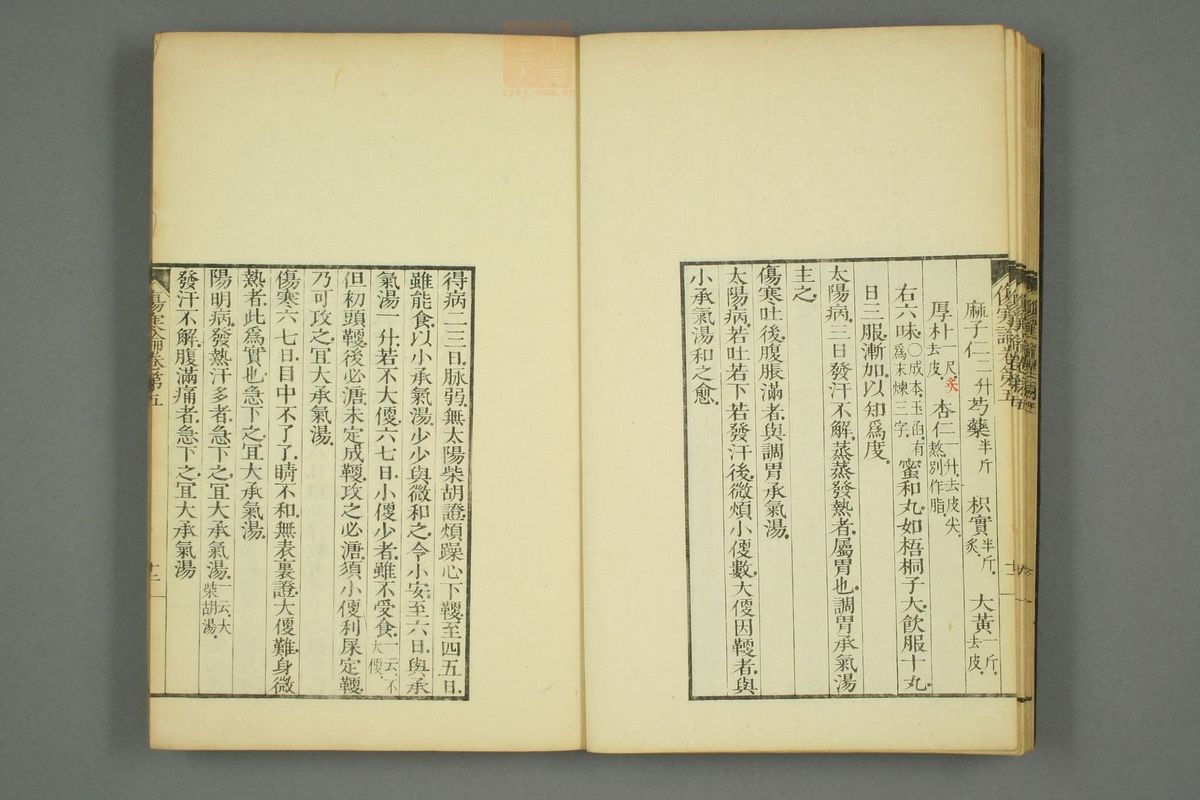 麻子仁二升 芍藥半斤 枳實半斤炙 大黃一斤去皮
厚朴一尺炙去皮 杏仁一升去皮尖熬別作脂
右六味○成本玉函有爲末煉三字蜜和丸如梧桐子大飲服十丸
日三服漸加以知爲度
太陽病三日發汗不解蒸蒸發熱者屬胃也調胃承氣湯
主之
傷寒吐後腹脹滿者與調胃承氣湯
太陽病若吐若下若發汗後微煩小便數大便因鞕者與
小承氣湯和之愈
得病二三日脉弱無太陽柴胡證煩躁心下鞕至四五日
雖能食以小承氣湯少少與微和之令小安至六日與承
氣湯一升若不大便六七日小便少者雖不受食一云不大便
但初頭鞕後必溏未定成鞕攻之必溏須小便利屎定鞕
乃可攻之宜大承氣湯
傷寒六七日目中不了了睛不和無表裏證大便難身微
熱者此爲實也急下之宜大承氣湯
陽明病發熱汗多者急下之宜大承氣湯一云大柴胡湯
發汗不解腹滿痛者急下之宜大承氣湯
十二